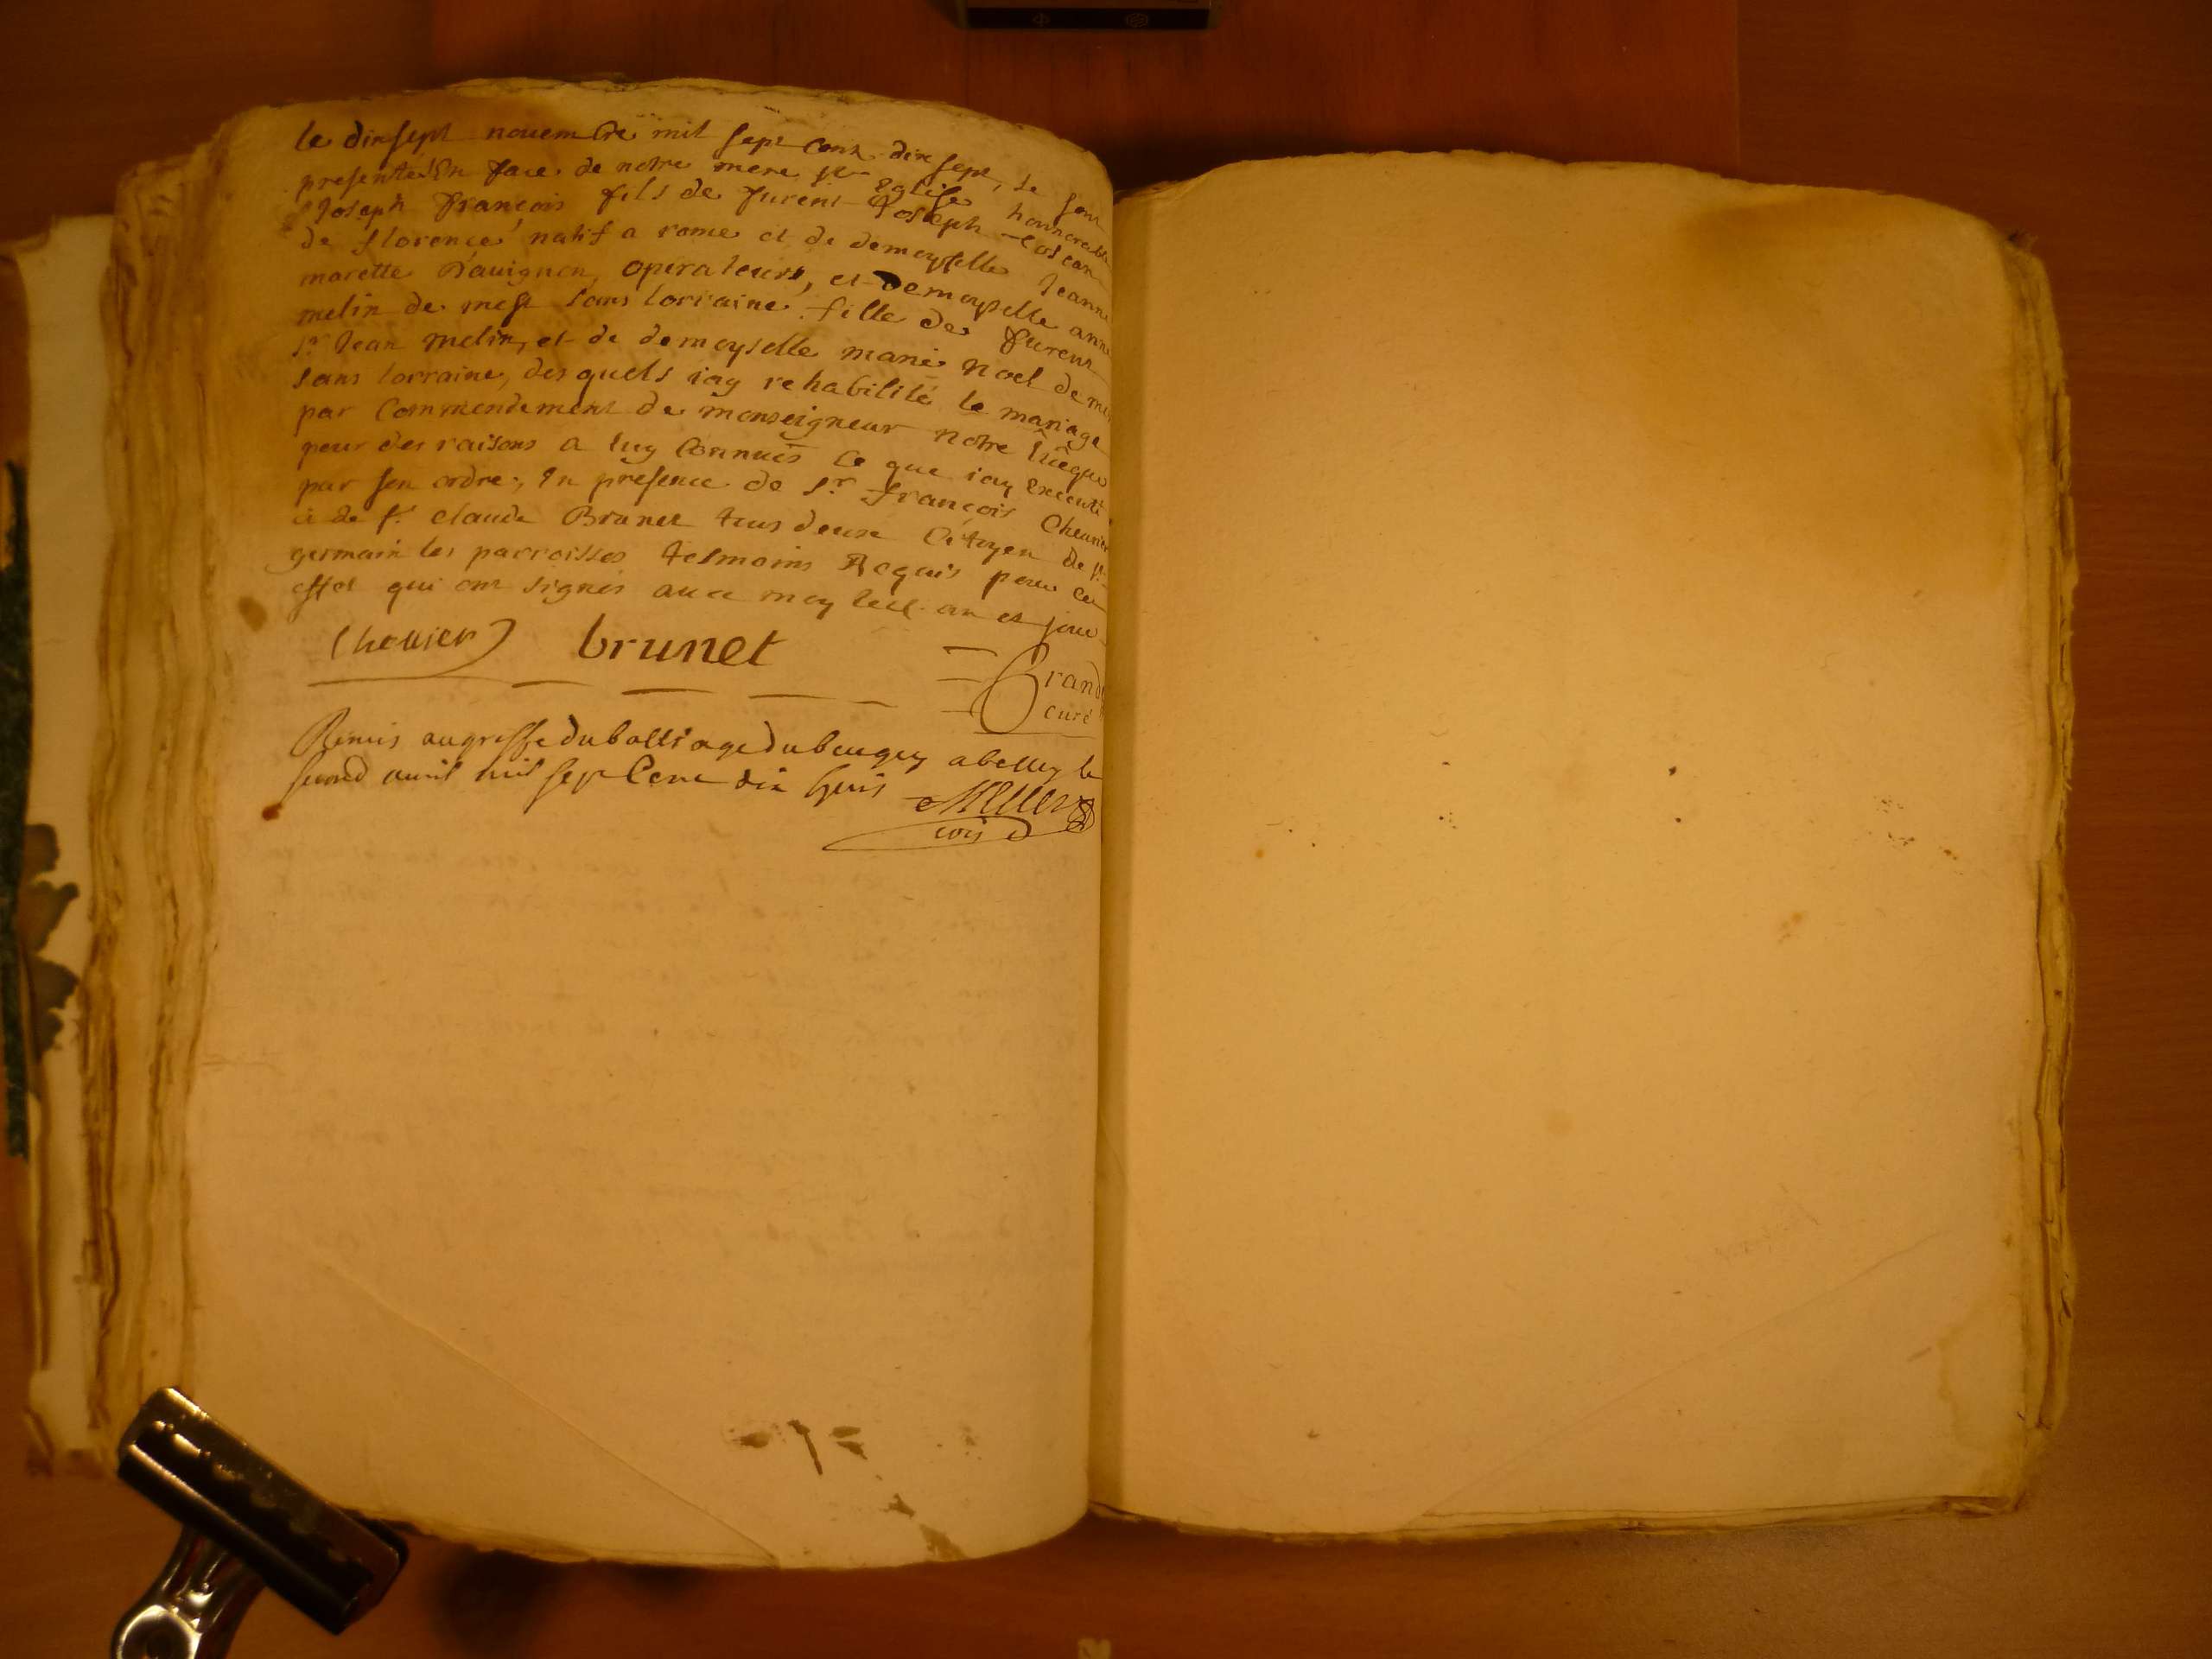 le dixsept novembre mil sept cent dix sept, se sont
presenté En face de notre mere ste Eglise honnorable
Joseph françois fils de furent Joseph toscan
de florence natif a rome et de demoyselle Jeanne
marette D'auignon, operateurs, et demoyselle anne
melin de mest sans lorraine fille de furent
sr Jean melin, et de demoyselle marie noel de
sans lorraine, des quels iay rehabilité le mariage
par Commendement de monseigneur notre Evêque
pour des raisons a luy Connuës ce que iay executé
par son ordre, En presence de sr françois Cheuier
et de sr claude Brunet tous deux Citoyen de st
germain les parroisses tesmoins Requis pour cet
effet qui ont signés auec moy lesd. an et jour
Cheuier brunet Grand
curé
Remis au greffe du balliage du beugey a belley le
second auril mil sept Cent dix huit